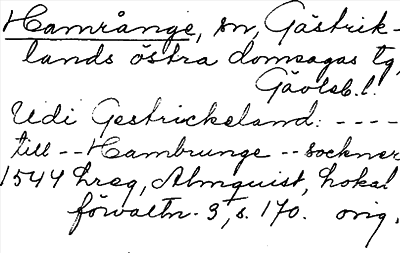 Hamrånge, sn, Gästrik-
lands östra domsagas tg,
Gävleb. l.
Udi Gestrickeland: ----
till -- Hambrunge -- sockner
1544 hreg, Almquist, Lokal
förvaltn. 3, s. 170. orig.